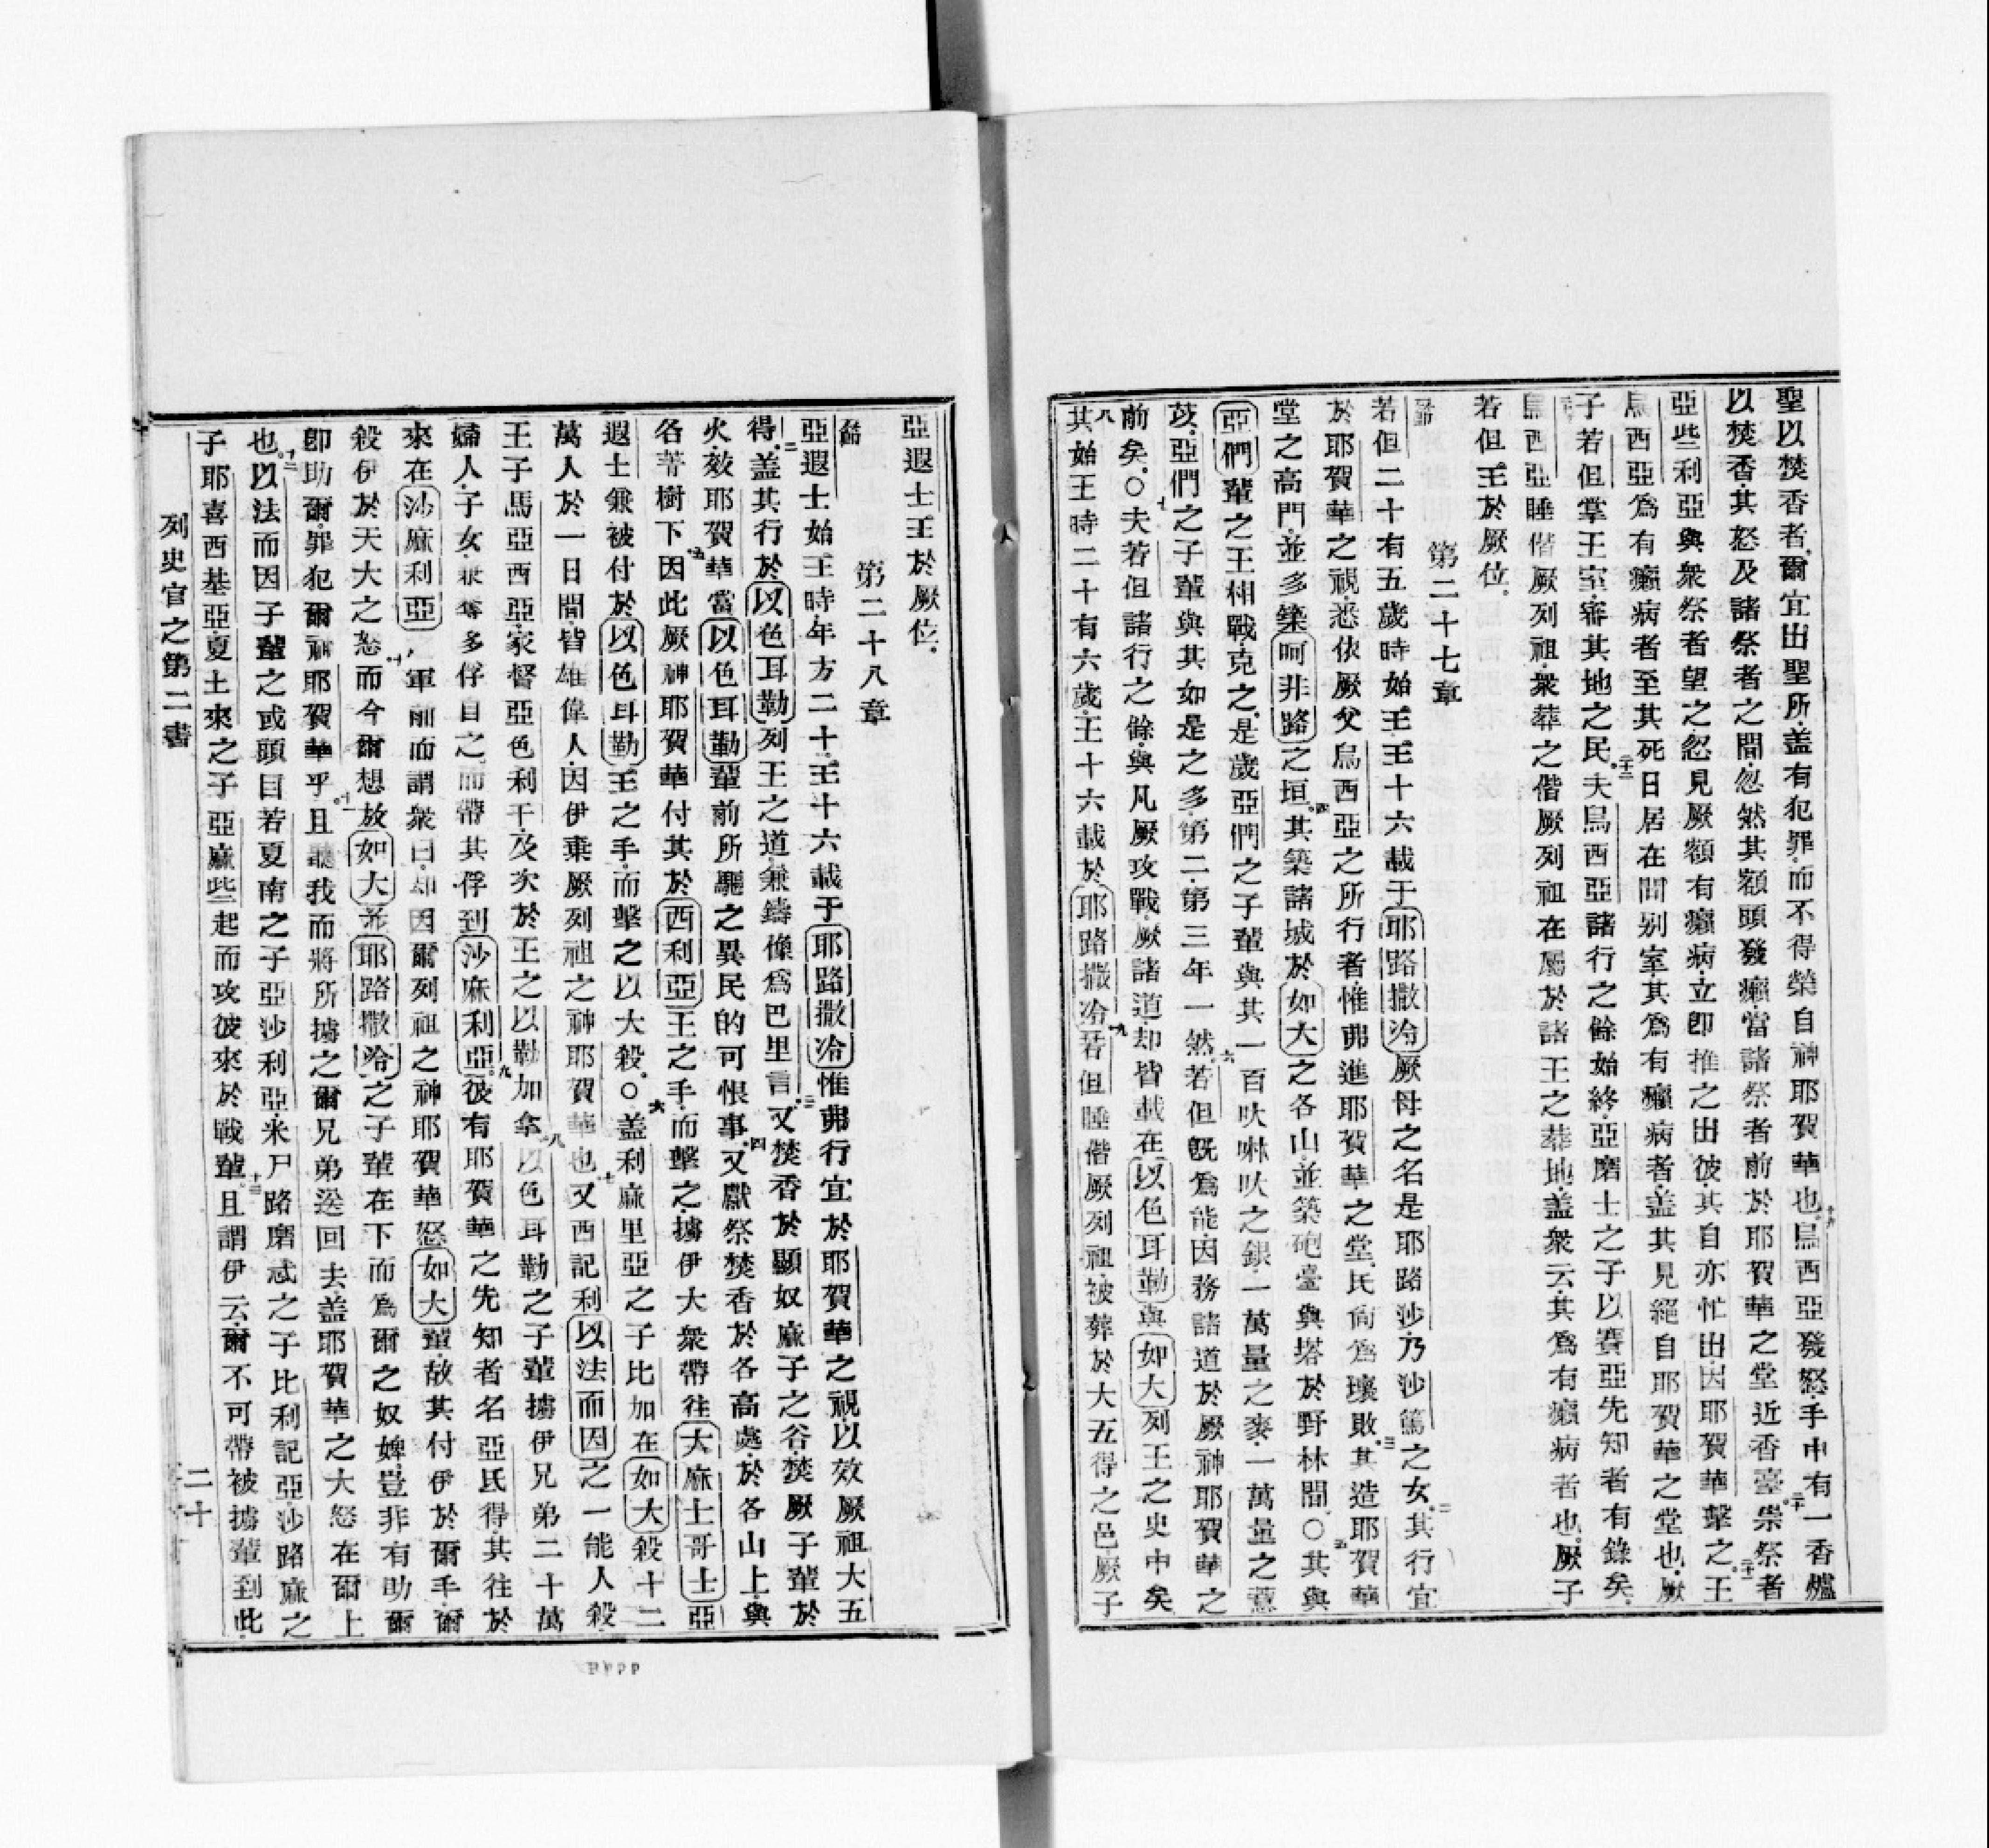 聖以焚香者爾宜出聖所蓋有犯罪而不得榮自神耶賀華也十九烏西亞發怒手中有一香爐
以焚香其怒及諸祭者之間忽然其額頭發癩當諸祭者前於耶賀華之堂近香臺二十崇祭者
亞些利亞與衆祭者望之忽見厥額有癩病立卽推之出彼其自亦忙出因耶賀華擊之二十一王
烏西亞爲有癩病者至其死日居在間别室其爲有癩病者蓋其見絕自耶賀華之堂也厥
子若但掌王室審其地之民二十二夫烏西亞諸行之餘始終亞磨士之子以賽亞先知者有錄矣
烏西亞睡偕厥列祖衆葬之偕厥列祖在屬於諸王之葬地蓋衆云其爲有癩病者也厥子
若但王於厥位
第二十七章
若但二十有五歲時始王王十六載于耶路撒冷厥母之名是耶路沙乃沙篤之女二其行宜
於耶賀華之視悉依厥父烏西亞之所行者惟弗進耶賀華之堂民尙爲壞敗三其造耶賀華
堂之高門並多築呵非路之垣四其築諸城於如大之各山並築砲臺與塔於野林間〇五其與
亞們輩之王相戰克之是歲亞們之子輩與其一百吠啉吠之銀一萬量之麥一萬量之薏
苡亞們之子輩與其如是之多第二第三年一然六若但旣爲能因務諸道於厥神耶賀華之
前矣〇七夫若但諸行之餘與凡厥攻戰厥諸道却皆載在以色耳勒與如大列王之史中矣
八其始王時二十有六歲王十六載於耶路撒冷九若但睡偕厥列祖被葬於大五得之邑厥子
亞遐士王於厥位
第二十八章
亞遐士始王時年方二十王十六載于耶路撒冷惟弗行宜於耶賀華之視以效厥祖大五
得二蓋其行於以色耳勒列王之道兼鑄像爲巴里言三又焚香於顯奴麻子之谷焚厥子輩於
火效耶賀華當以色耳勒輩前所驅之異民的可恨事四又獻祭焚香於各高處於各山上與
各菩樹下五因此厥神耶賀華付其於西利亞王之手而擊之擄伊大衆帶往大麻士哥士亞
遐士兼被付於以色耳勒王之手而擊之以大殺〇六蓋利麻里亞之子比加在如大殺十二
萬人於一日間皆雄偉人因伊棄厥列祖之神耶賀華也七又西記利以法而因之一能人殺
王子馬亞西亞家督亞色利干及次於王之以勒加拿八以色耳勒之子輩擄伊兄弟二十萬
婦人子女兼奪多俘自之而帶其俘到沙麻利亞九彼有耶賀華之先知者名亞氏得其往於
來在沙麻利亞之軍前而謂衆曰却因爾列祖之神耶賀華怒如大輩故其付伊於爾手爾
殺伊於天大之怒十而今爾想放如大並耶路撒冷之子輩在下而爲爾之奴婢豈非有助爾
卽助爾罪犯爾神耶賀華乎十一且聽我而將所擄之爾兄弟送回去蓋耶賀華之大怒在爾上
也十二以法而因子輩之或頭目若夏南之子亞沙利亞米尸路磨忒之子比利記亞沙路麻之
子耶喜西基亞夏土來之子亞麻些起而攻彼來於戰輩十三且謂伊云爾不可帶被擄輩到此
列史官之第二書
二十